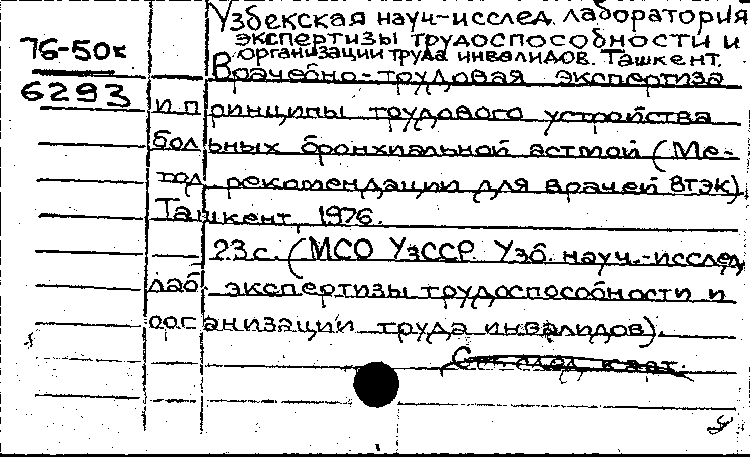 Узбекская науч-исслед. лаборатория
экспертизы трудоспособности и
организации труда инвалидов. Ташкент.
76-50к
6293
Врачебно-трудовая экспертиза
и принципы трудового устройства
больных бронхиальной астмой (Ме-
тод. рекомендации для врачей ВТЭК).
Ташкент, 1976.
23 с. (МСО УзССР. Узб. науч.-исслед.
лаб. экспертизы трудоспособности и
организации труда инвалидов).
См. след. карт.